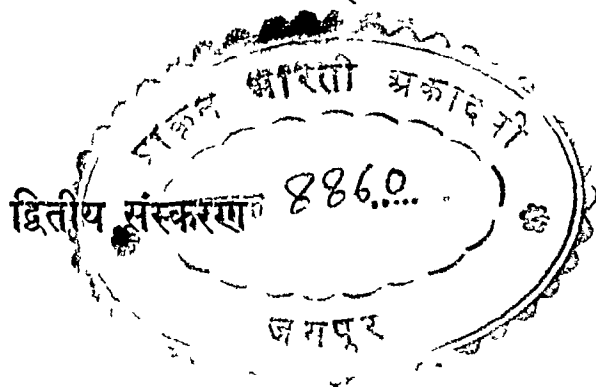 प्राकृत भारती अकादमी
द्वितीय संस्करण 8860
जयपुर